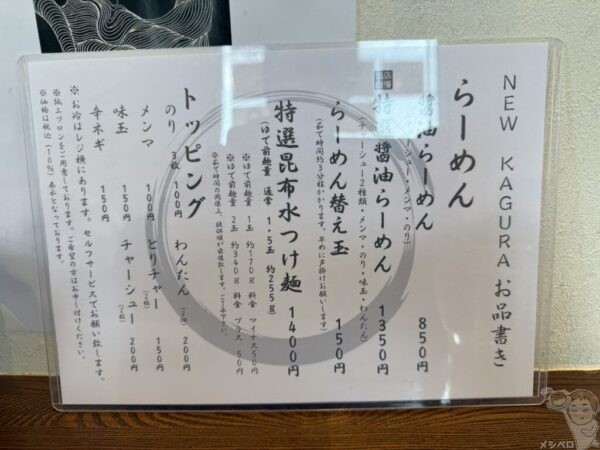 NEW KAGURA お品書き
らーめん
醤油らーめん 850円
(チャーシュー・メンマ・のり)
当店自慢
特選醤油らーめん 1350円
(チャーシュー2種類・メンマ・のり・味玉・わんたん)
らーめん替え玉 150円
(茹で時間約3分程かかります。早めにお声掛けお願いします)
特選昆布水つけ麺 1400円
(ゆで前麺量 通常 1.5玉 約255g)
※ゆで前麺量 1玉 約170g 料金 マイナス50円
※ゆで前麺量 2玉 約340g 料金 プラス 50円
※茹で時間の関係上、提供順が前後致します。ご了承下さい。
トッピング
のり 3枚 100円
わんたん (2個) 200円
メンマ 100円
とりチャー (2枚) 150円
味玉 150円
チャーシュー (2枚) 200円
辛ネギ 150円
※お冷はレジ横にあります。セルフサービスでお願い致します。
※紙エプロンをご用意しております。ご希望の方はお申し付けください。
※価格は税込(10%)表示となっております。
メシペロ